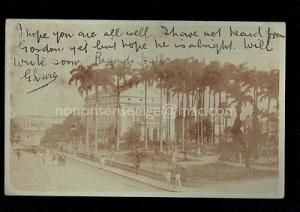 I hope you are all well. I have not heard from
Gordon yet but hope he is alright. Will
write soon.
nononsensenige@mac.com